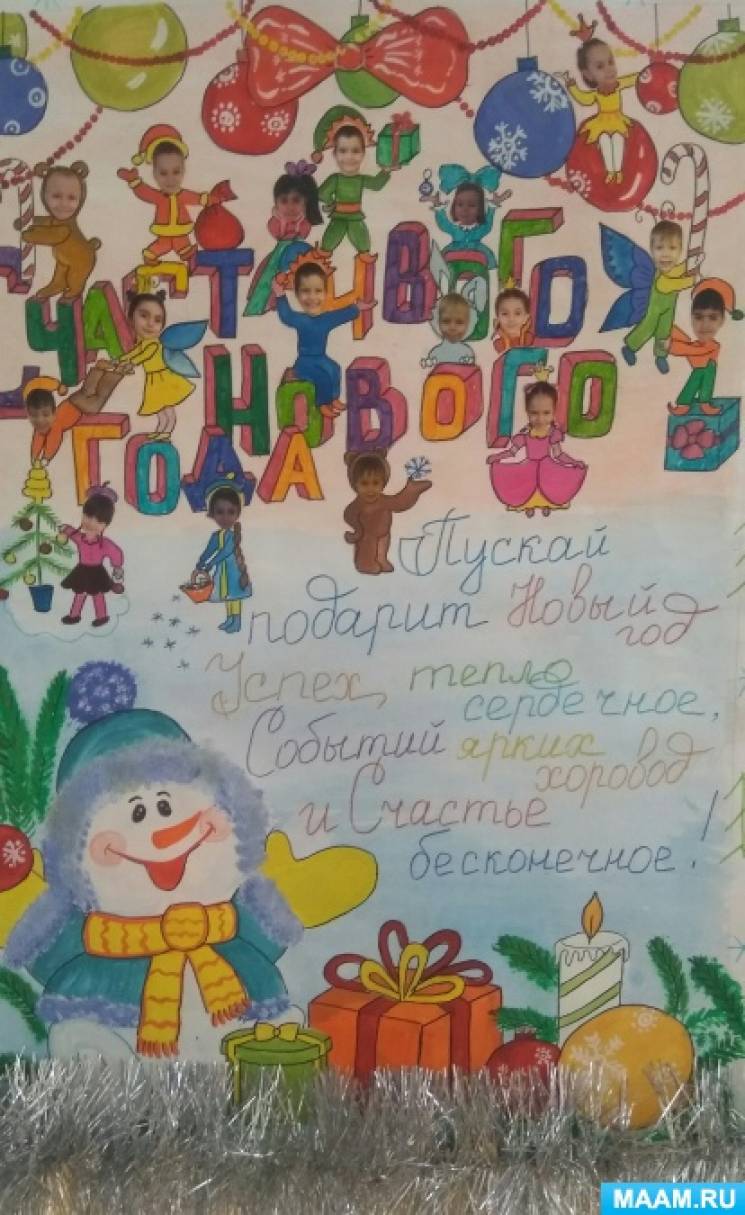 СЧАСТЛИВОГО
НОВОГО
ГОДА
Пускай
подарит Новый год
Успех, тепло сердечное,
Событий ярких хоровод
и Счастье
бесконечное!
MAAM.RU